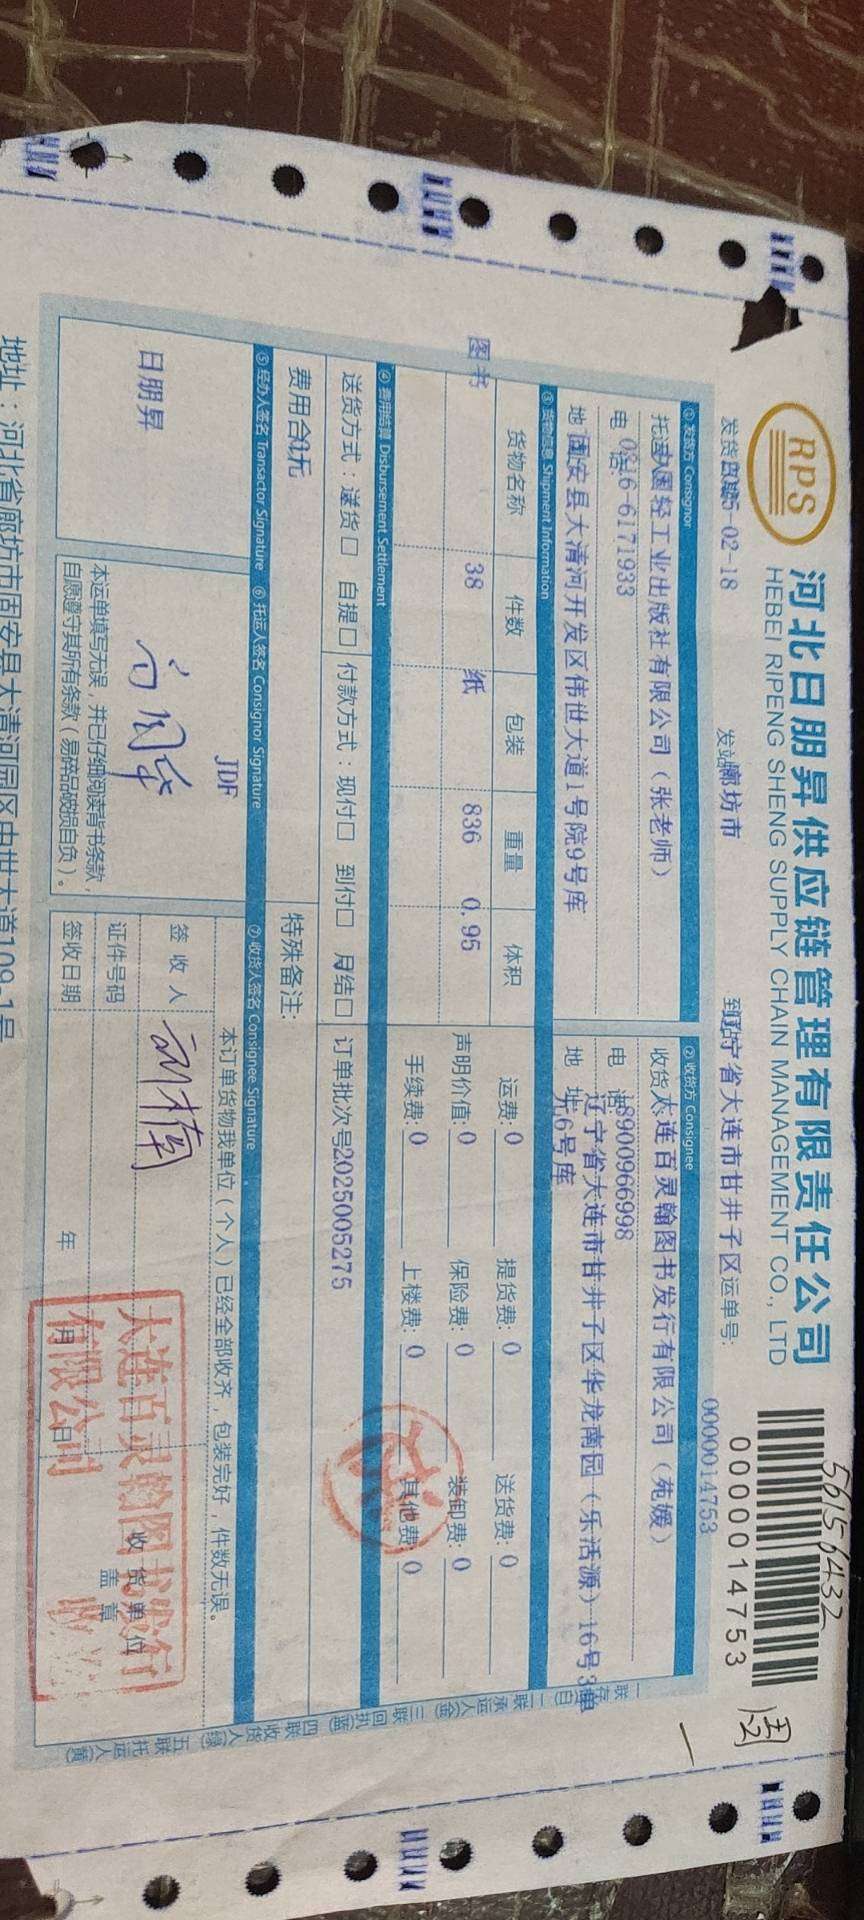 RPS
河北日朋昇供应链管理有限责任公司
HEBEI RIPENG SHENG SUPPLY CHAIN MANAGEMENT CO., LTD
56156432
0000014753
0000014753
发货日期 2025-02-18 发站 廊坊市 到站 辽宁省大连市甘井子区 运单号:
① 发货方 Consignor
② 收货方 Consignee
托运人 中国轻工业出版社有限公司（张老师）
收货人 大连百灵翰图书发行有限公司（苑媛）
电话: 0316-6171933
电话: 18900966998
地址 固安县大清河开发区伟世大道1号院9号库
地址 辽宁省大连市甘井子区华龙南园（乐活源）16号3单元6号库
③ 货物信息 Shipment Information
货物名称 件数 包装 重量 体积
图书 38 纸 836 0.95
运费: 0 提货费: 0 送货费: 0
声明价值: 0 保险费: 0 装卸费: 0
手续费: 0 上楼费: 0 其他费: 0
④ 费用结算 Disbursement Settlement
送货方式：送货□ 自提□ 付款方式：现付□ 到付□ 月结□ 订单批次号 2025005275
费用合计 0元
特殊备注:
⑤ 经办人签名 Transactor Signature
⑥ 托运人签名 Consignor Signature
⑦ 收货人签名 Consignee Signature
日朋昇
JDF
本运单填写无误，并已仔细阅读背书条款，
自愿遵守其所有条款（易碎品破损自负）。
本订单货物我单位（个人）已经全部收齐，包装完好，件数无误。
签收人
证件号码
签收日期 年 月 日
收货单位
盖章
大连百灵翰图书发行
有限公司
一联存根(白) 二联承运人(金) 三联回执(蓝) 四联收货人(绿) 五联托运人(黄)
地址：河北省廊坊市固安县大清河园区中世大道109-1号